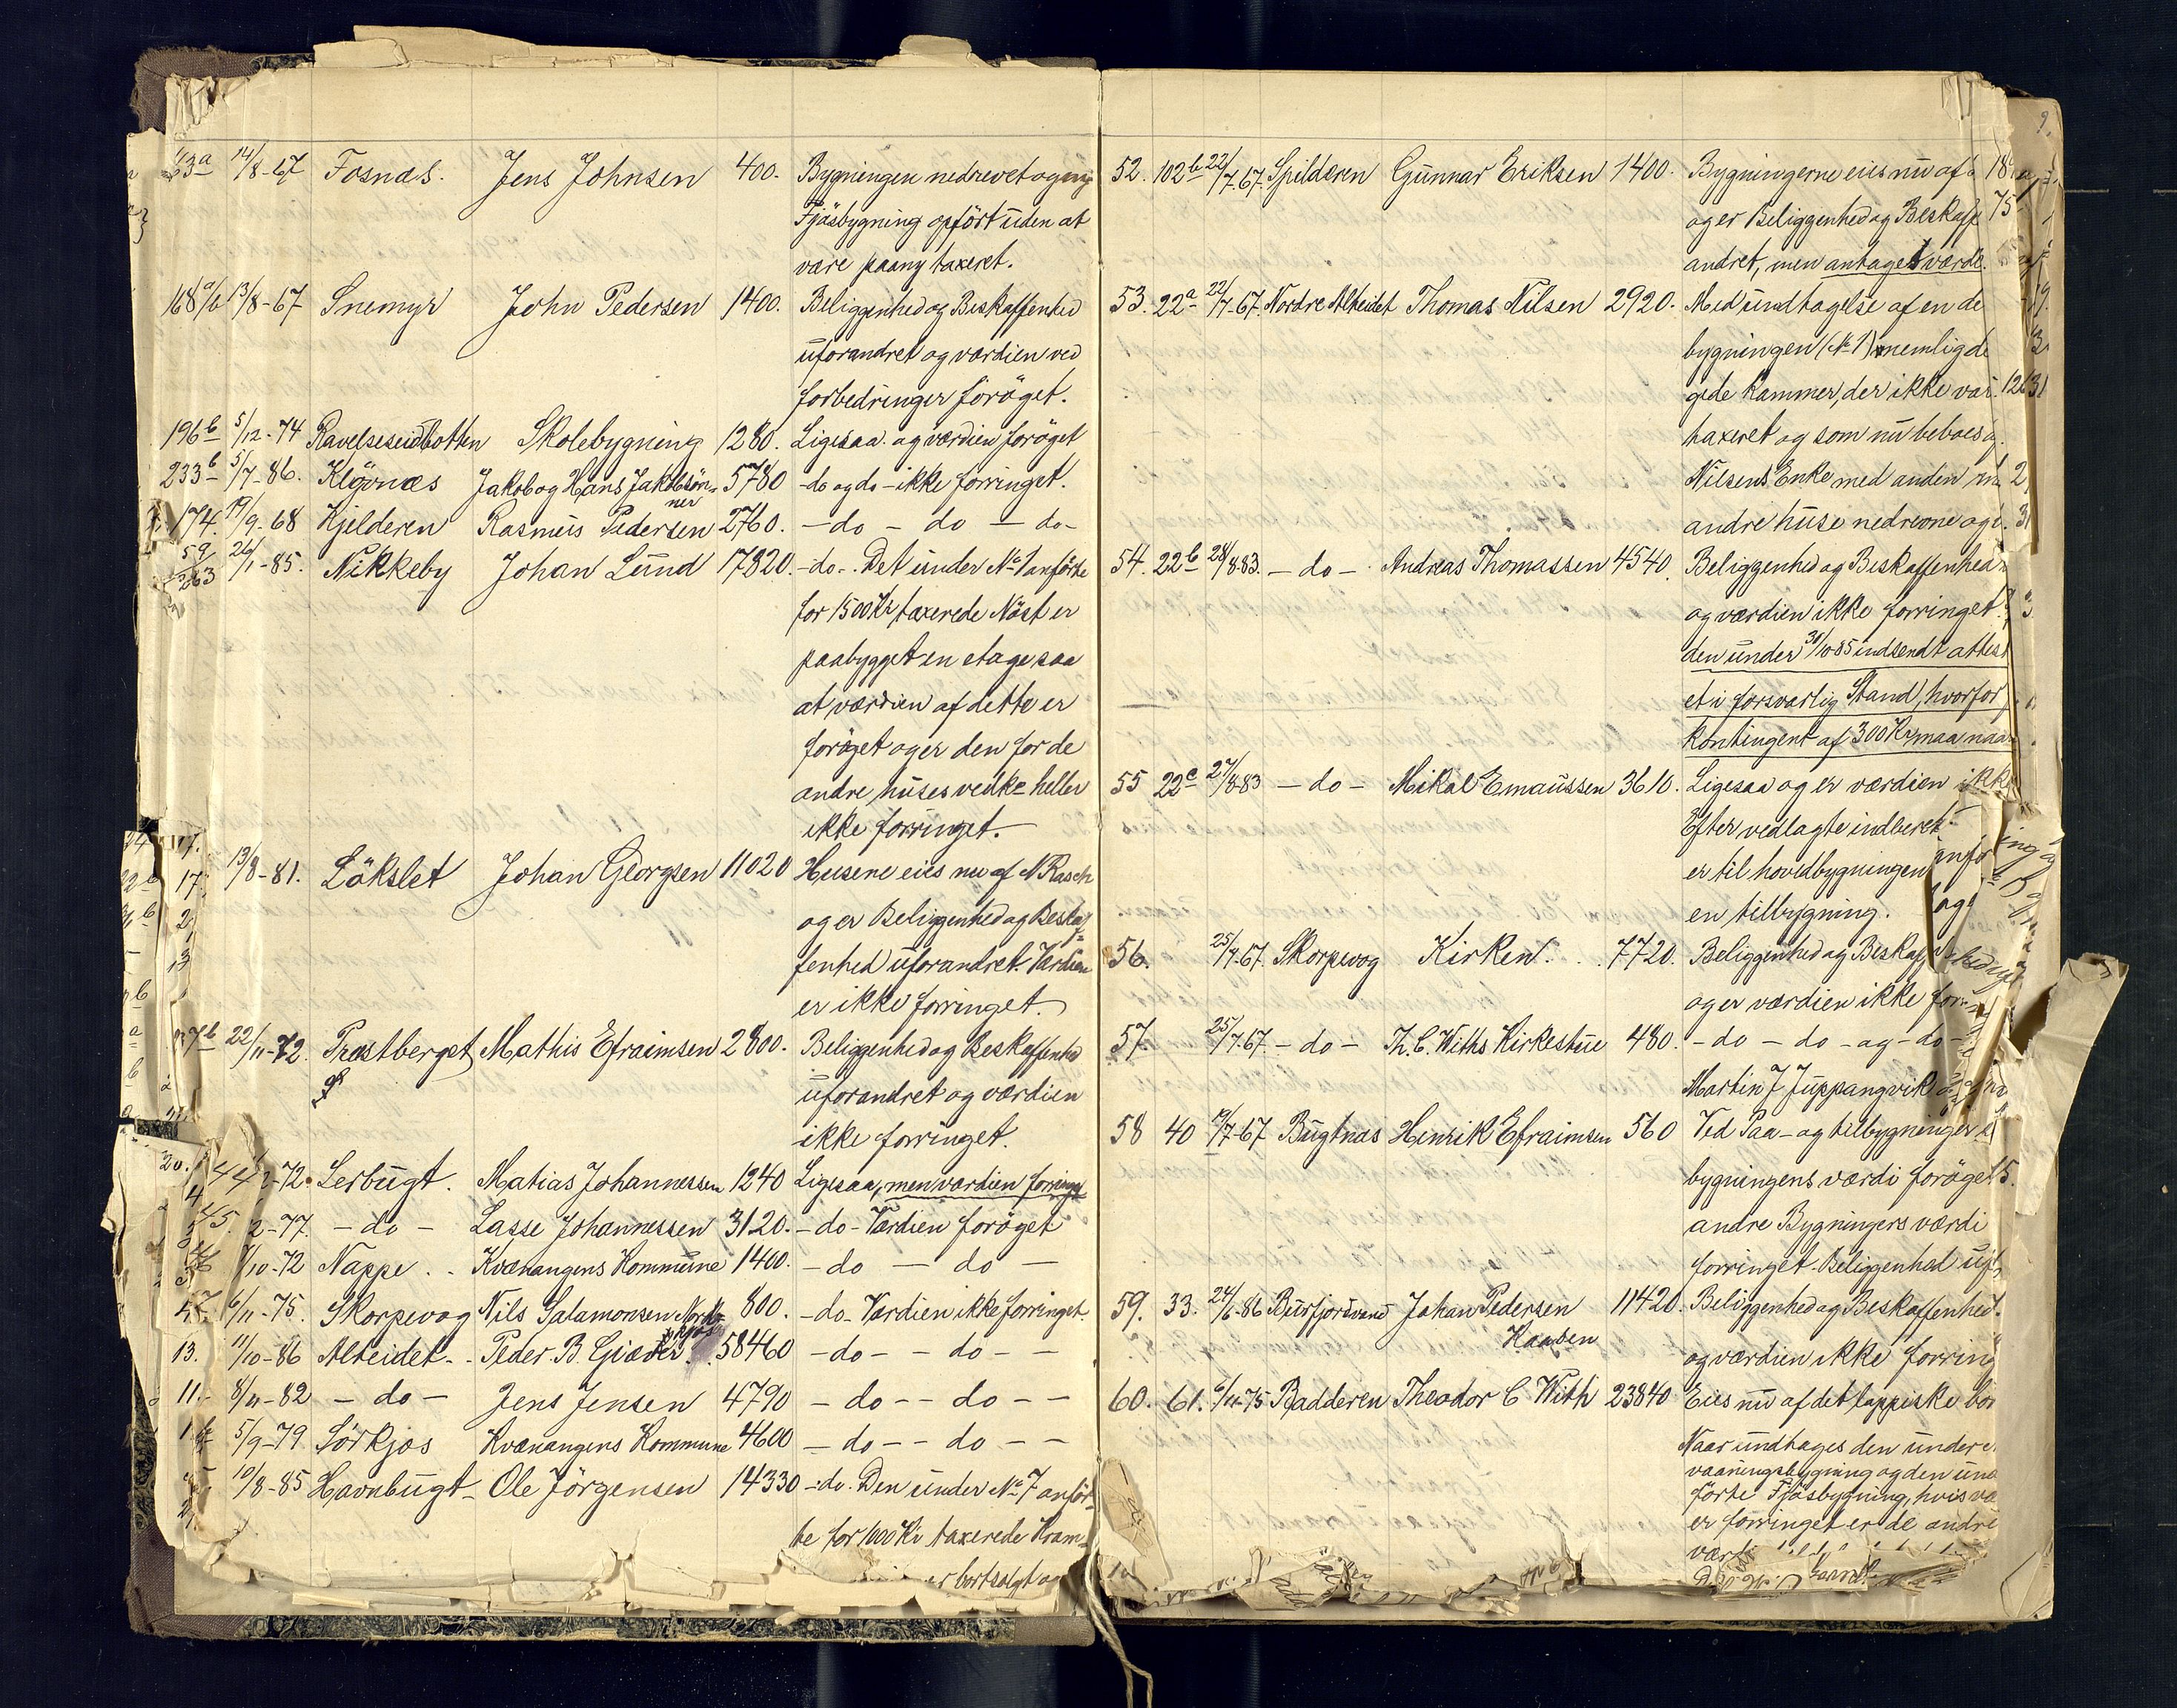 63a 14/8-67 Fosnæs. Jens Johnsen 400. Bygningen nedrevet og ny
Fjøsbygning opført uden at
være paany taxeret.
168 a/b 13/8-67 Snemyr John Pedersen 1400. Beliggenhed og Beskaffenhed
uforandret og værdien ved
forbedringer forøget.
196b 5/12-74 Ravelseidbotten Skolebygning 1280. Ligesaa og værdien forøget
233b 5/7-86. Kløvnæs Jakob og Hans Jakobsøn- 5780 -do og do- ikke forringet.
ner
174. 19/9-68 Kjelderen Rasmus Pedersen 2760. -do - do - do-
59/263 26/1-85. Nikkeby Johan Lund 17820. -do-. Det under No 1 anførte
for 1500 Kr taxerede Nøst er
paabygget en etage saa
at værdien af dette er
forøget og er den for de
andre huses vedk= heller
ikke forringet.-
17. 13/8-81. Løkslet Johan Georgsen 11020 Husene eies nu af N Rasch
og er Beliggenhed og Beskaf-
fenhed uforandret. Værdien
er ikke forringet.
7b 22/11-72. Præstberget Mathis Efraimsen 2800. Beliggenhed og Beskaffenhed
uforandret og værdien
ikke forringet.
44 2-72. Lerbugt. Matias Johannessen 1240 Ligesaa, men værdien forringet
45. 2-77. -do- Lasse Johannessen 3120. -do- Værdien forøget
46 /10-72 Nappe.. Kvænangens Kommune 1400. -do - do -
47. 6/11-75. Skorpevog Nils Salamonsen Nord- 800. -do- Værdien ikke forringet.
kjos
13. 11/10-86 Alteidet.. Peder B. Giæver. 58460 -do- - do - -
11.- 8/11-82 -do- Jens Jensen 4790 -do- - do - -
5/9-79 Sørkjos Kvænangens Kommune 4600 -do- - do - -
10/8-85 Havnbugt Ole Jørgensen 14330 -do. Den under No 7 anfør-
te for 1000 Kr taxerede Kram-
er bortsolgt og
52. 102b 22/7-67. Spilderen Gunnar Eriksen 1400. Bygningerne eies nu af
og er Beliggenhed og Beskaff
andret, men antages værdi.
53. 22a 22/7-67. Nordre Alteidet Thomas Nilsen 2920. Med undtagelse af en de
bygningen (No 1) nemlig de
gede Kammer, der ikke var
taxeret og som nu beboes a
Nilsens Enke med anden m
andre huse nedrevne og
54. 22b 28/8-83. -do-. Andreas Thomassen 4540. Beliggenhed og Beskaffenhed
og værdien ikke forringet.
den under 30/10 85 indsendt attest
et i forsvarlig Stand, hvorfor
kontingent af 300 Kr maa naa
55 22c 27/8-83 -do- Mikal Emaussen 3610. Ligesaa og er værdien ikke
Efter vedlagte indberet-
er til hovedbygningen anfø
en tilbygning.
56. 25/7-67. Skorpevog Kirken... 7720. Beliggenhed og Beskaf
og er værdien ikke for
57. 25/7.67. -do- Th. C. Withs Kirkestue 480. -do - do - og - do -
Martin J Juppangvik
58 40 /7-67 Bugtnæs Henrik Efraimsen 560 Ved Paa- og tilbygninger
bygningens værdi forøget
andre Bygningers værdi
forringet. Beliggenhed uf
59. 33. 24/6-86 Burfjordvand Johan Pedersen 11420. Beliggenhed og Beskaffenhed.
Haaden
og værdien ikke forring
60. 61. 6/11-75 Badderen Theodor C With 23840 Eies nu af det lappiske bor
Naar undtages den under
vaaningsbygning og den und
førte Fjøsbygning, hvis væ
er forringet er de andre
værdi